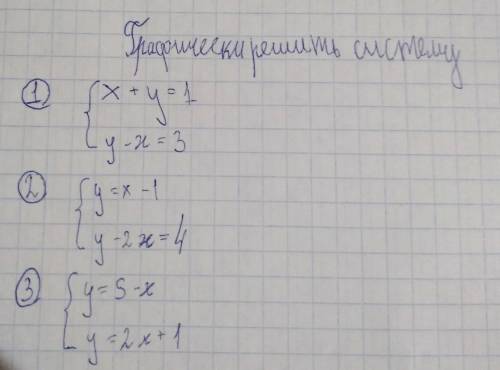 Графически решить систему
① { x + y = 1
y - x = 3
② { y = x - 1
y - 2x = 4
③ { y = 5 - x
y = 2x + 1